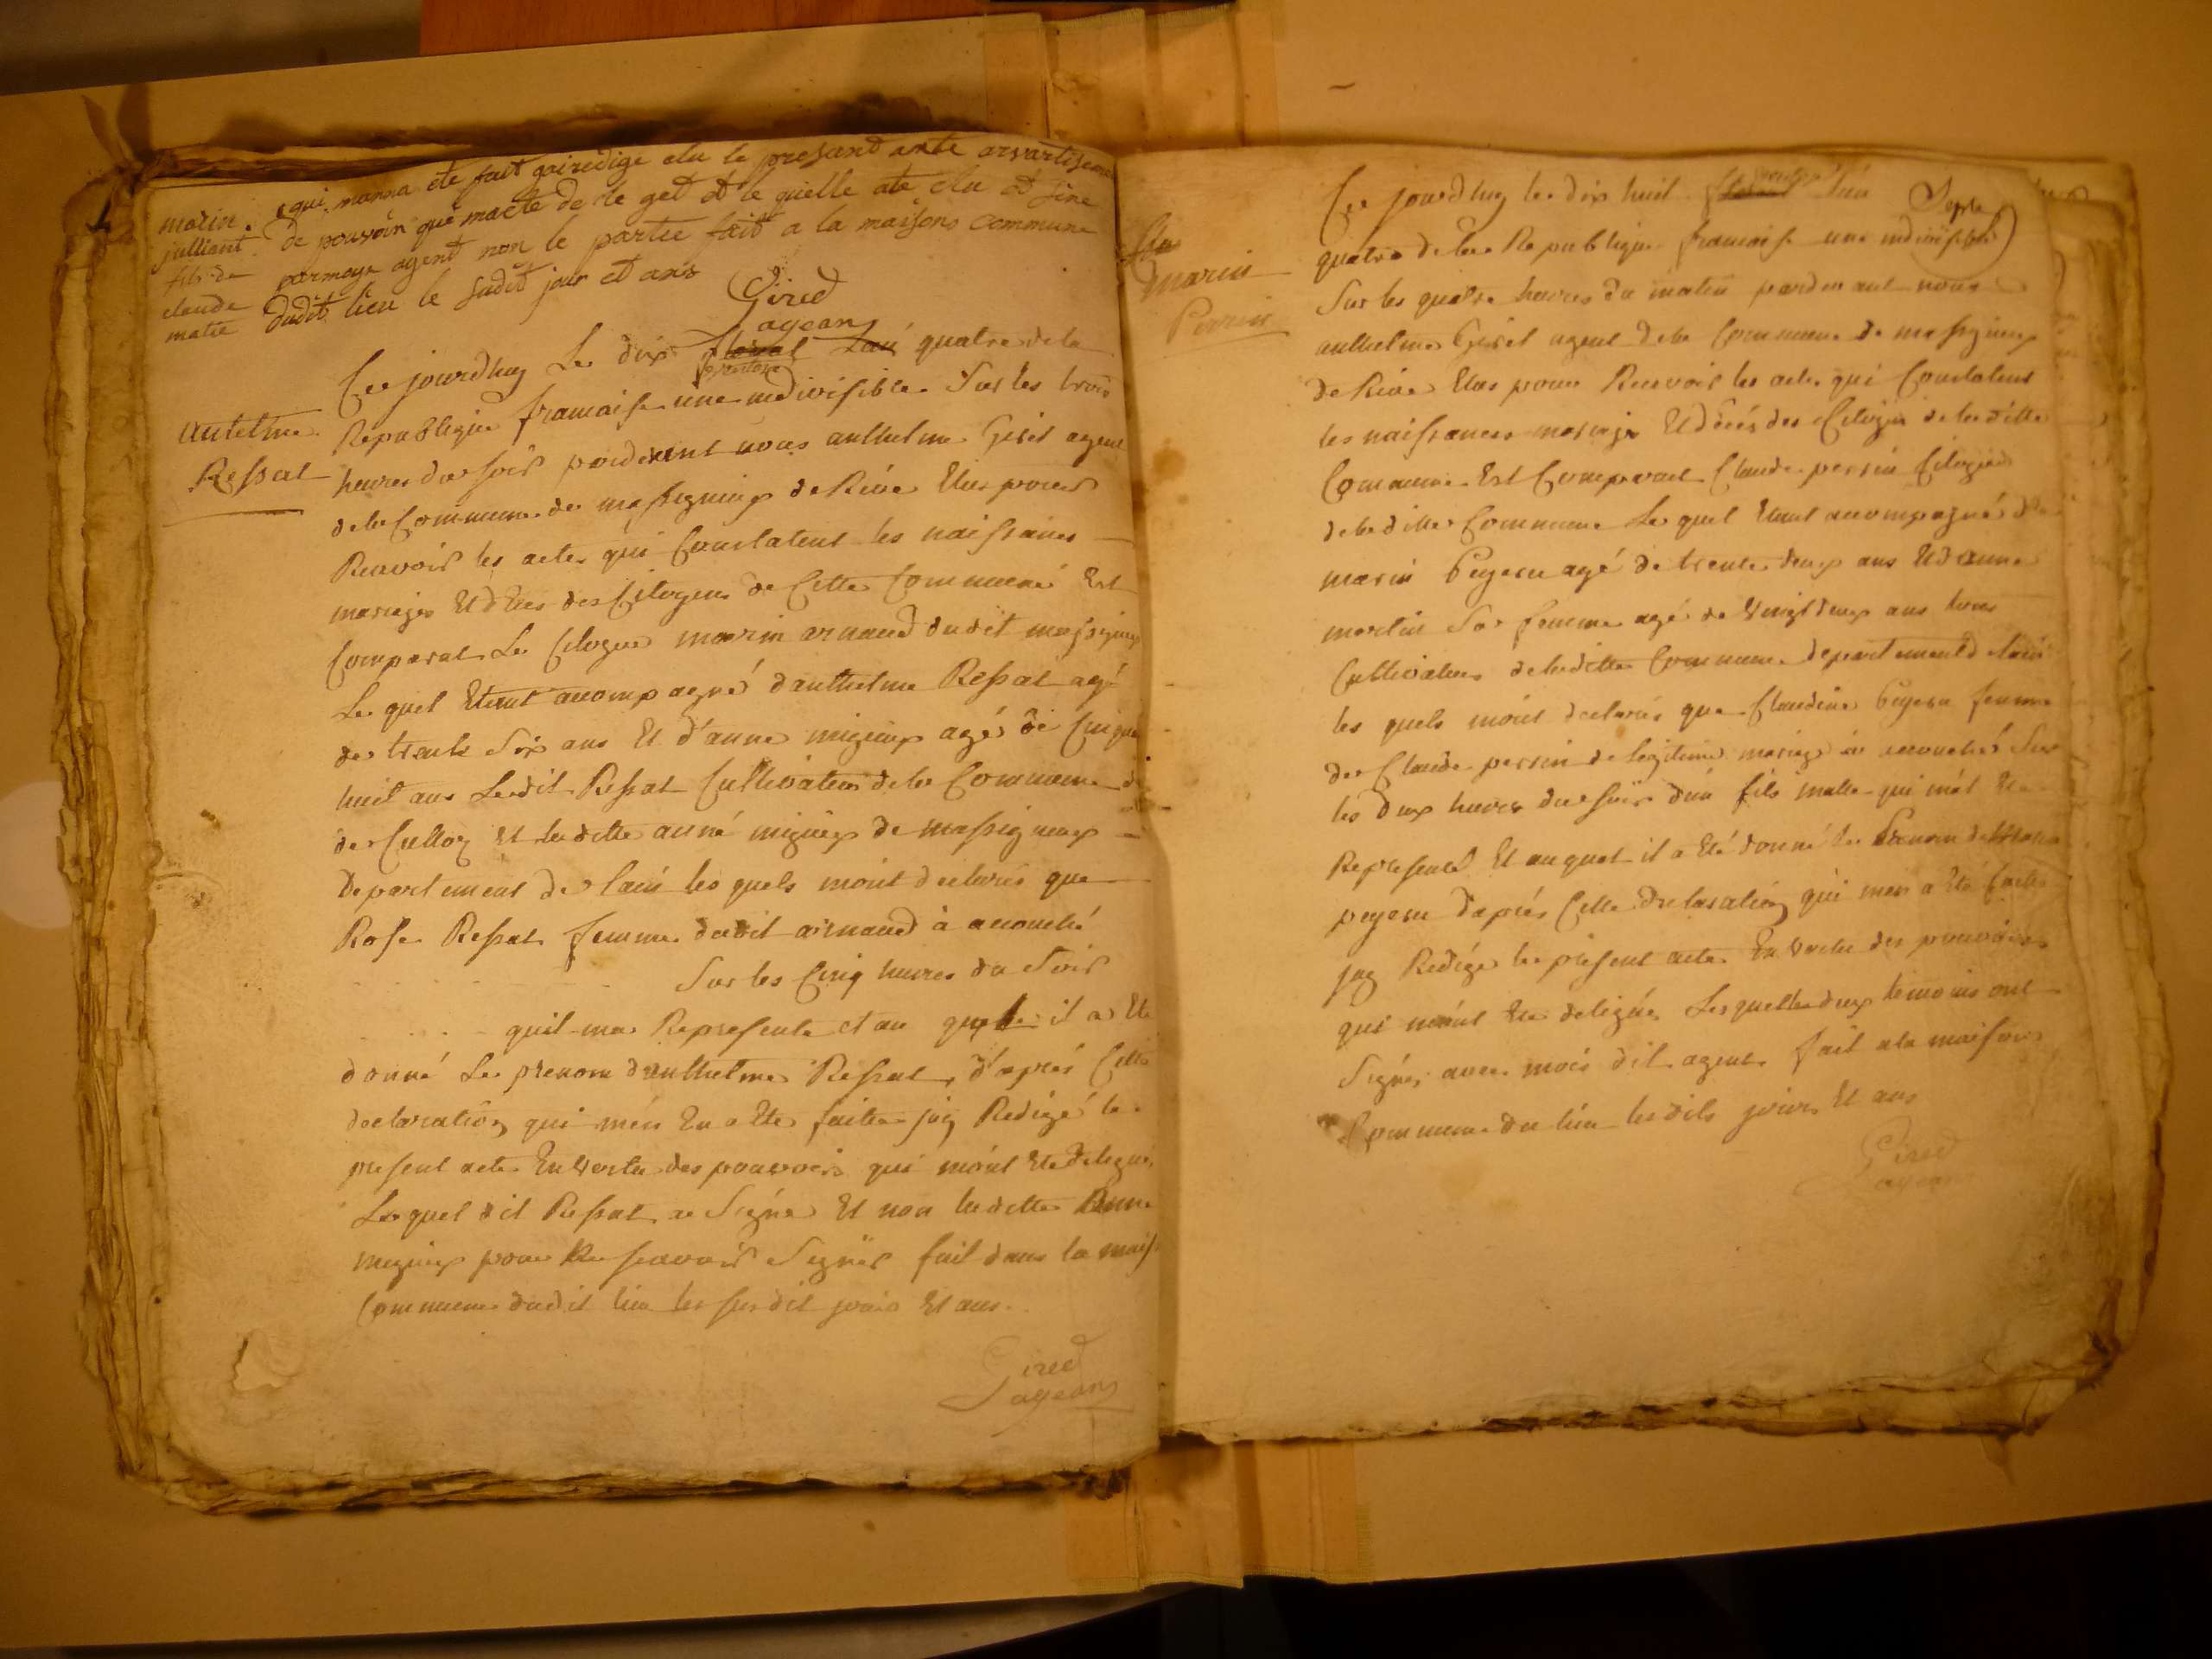 qui manna ete fait gairedige elu le presand ante
matin. de pouvoir que macte de le get et le quielle ate elu et sine
julliant parmoye agent non le partie fait a la maisons commune
fils de dudit lieu le sudit jour et ans
claude
matie
Gired
agean
Ce jourdhuy Le dix floreal Lan quatre de la
Antelme
Ressat
Republique francaise une indivisible Sur les trois
heures du soir pardevant nous anthelme Giret agent
de la Commune de massignieux de Rive Elus pour
Recevoir les actes qui Constatent les naissances
mariages Et deces des Citoyens de Cette Commune Est
Comparat Le Citoyen marin arnaud dudit massignieux
Le quel Etant acompagné danthelme Ressat agé
de trente Six ans Et d'anne migieux agé de
huit ans Ledit Ressat Cultivateur de la Commune
de Culloz Et laditte anne migieux de massignieux
Departement de Lain les quels mont declarés que
Rose Ressat femme dudit arnaud à acouché
Sur les Cinq heures du Soir
quil ma Represente et au quel il a Ete
donné Le prenom danthelme Ressat, d'aprés Cette
declaration qui men En a Ete faite jay Redigé le
present acte En Vertu des pouvoirs qui mont Ete delegués
Le quel dit Ressat a Signé Et non laditte Anne
migieux pour ne scavoir Signer fait dans la mais
Commune dudit lieu les susdit jour Et ans.
Gired
agean
Ce jourdhuy le dix huit floreal lan
Septe
marin
Perrin
quatre de la Republique francaise une indivisible
Sur les quatre heures du matin pardevant nous
anthelme Giret agent de la Commune de massignieux
de Rive Elus pour Recevoir les actes qui Constatent
les naissances mariage Et décés des Citoyens de laditte
Commune Est Comparat Claude perrin Citoyen
de laditte Commune Le quel Etant acompagnés de
marin Peyesu agé de trente deux ans Et danne
martin Sa femme agé de Vingt deux ans tous
Cultivateurs de laditte Commune departement de lain
les quels mont declarés que Claudine Peyesu femme
de Claude perrin de legitime mariage à acouché Sur
les deux heures du soir dun fils malle qui mat Ete
Represente Et au quel il a Eté donné le Prenom de Marin
peyesu daprés Cette declaration qui men a Ete faite
jay Redigé le present acte En Vertu des pouvoirs
qui mont Ete delegués Lesquelle deux temoins ont
Signés avec mois dit agent fait a la maison
Commune du lieu lesdits jours Et ans
Gired
agean